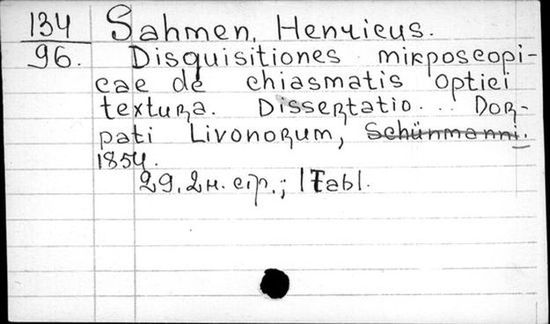 134 Sahmen, Henricus.
96. Disquisitiones mikroscopi-
cae de chiasmatis optici
textura. Dissertatio... Dor-
pati Livonorum, Schünmanni.
1854.
29, 2 н. стр.; 1 Tabl.